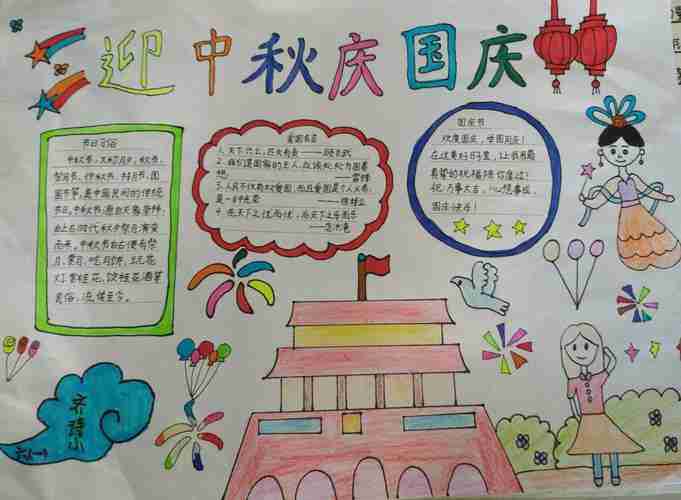 迎中秋庆国庆
节日习俗
中秋节，又称月夕、秋节、
月节、团
圆节等，是中国民间的传统
节日。中秋节源自天象崇拜，
由上古时代秋夕祭月演变
而来。中秋节自古便有祭
月、赏月、吃月饼、玩花
灯、赏桂花、饮桂花酒等
民俗，流传至今。
爱国名言
1、天下兴亡，匹夫有责
2、我们是国家的主人，应该处处为国着
想。——雷锋
3、人民不仅有权爱国，而且爱国是个人义务，
是一种光荣——徐特立
4、先天下之忧而忧，后天下之乐而乐
——范仲淹
国庆节
欢度国庆，举国同庆！
在这美好时里，让我用最
真挚的祝福陪你度过！
祝：万事大吉，心想事成，
国庆快乐！